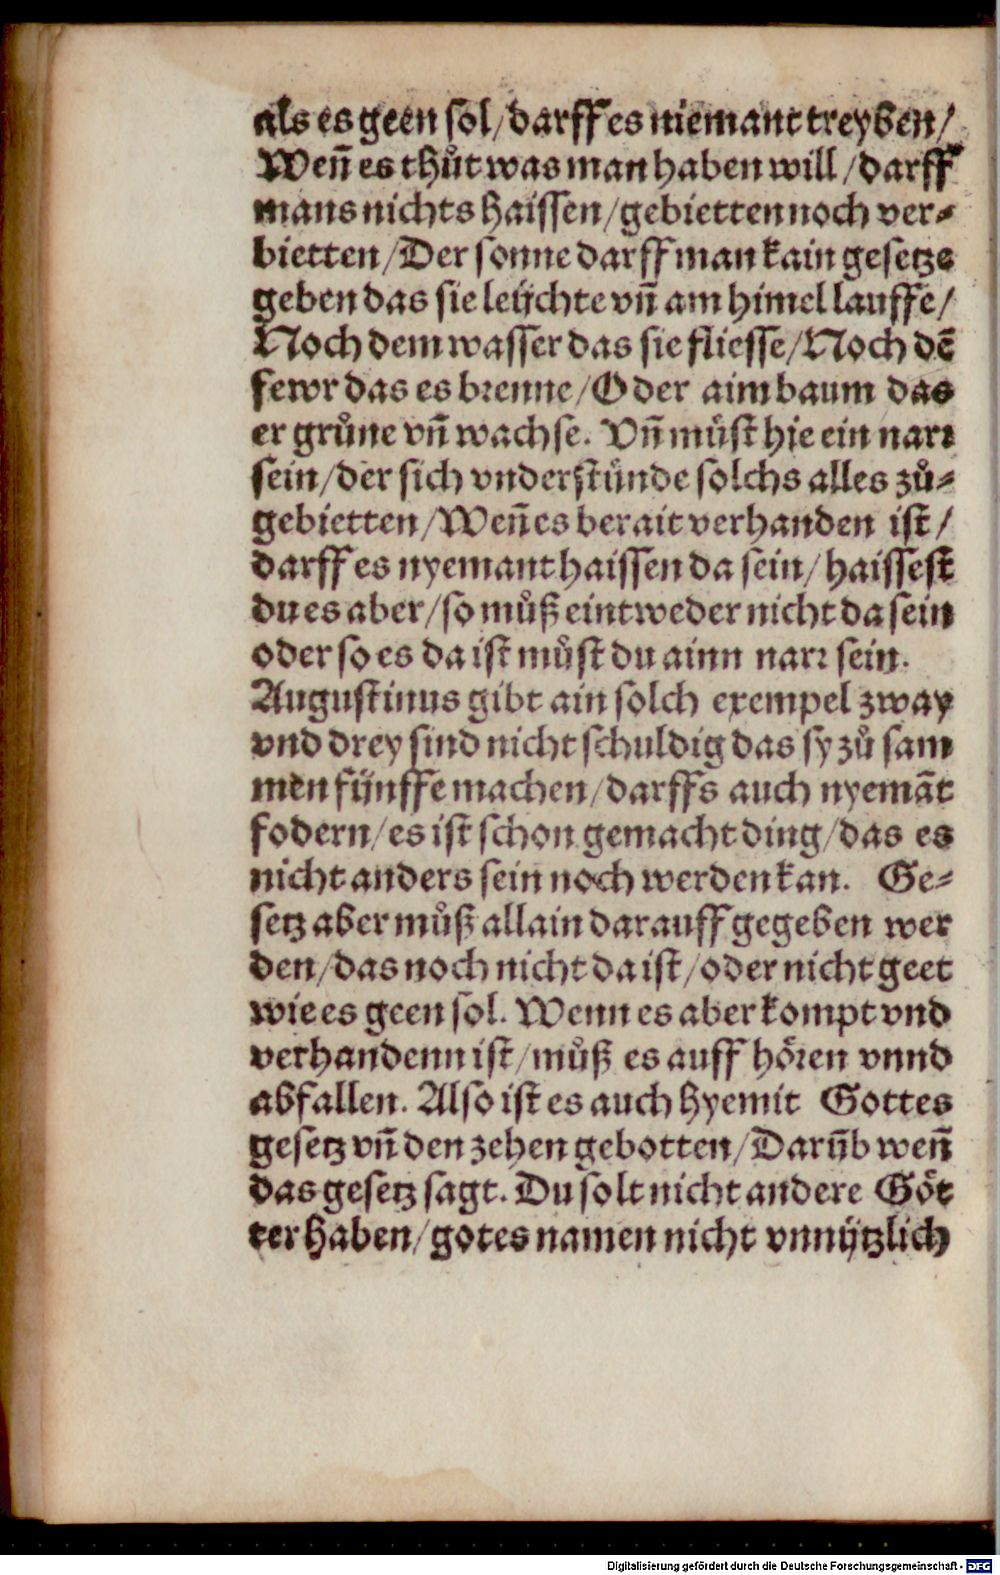 als es geen sol/darff es niemant treyben/
Weñ es thůt was man haben will/darff
mans nichts haissen/gebietten noch ver-
bietten/Der sonne darff man kain gesetze
geben das sie leüchte vñ am himel lauffe/
Noch dem wasser das sie fliesse/Noch dē
fewr das es brenne/Oder aim baum das
er grůne vñ wachse. Vñ můst hie ein narr
sein/der sich vnderstünde solchs alles zů-
gebietten/Weñ es berait verhanden ist/
darff es nyemant haissen da sein/haissest
du es aber/so můß eintweder nicht da sein
oder so es da ist můst du ainn narr sein.
Augustinus gibt ain solch exempel zway
vnd drey sind nicht schuldig das sy zů sam
men fünffe machen/darffs auch nyemāt
fodern/es ist schon gemacht ding/das es
nicht anders sein noch werden kan. Ge-
setz aber můß allain darauff gegeben wer
den/das noch nicht da ist/oder nicht geet
wie es geen sol. Wenn es aber kompt vnd
verhandenn ist/můß es auff hören vnnd
abfallen. Also ist es auch hyemit Gottes
gesetz vñ den zehen gebotten/Darüb weñ
das gesetz sagt. Du solt nicht andere Göt
ter haben/gotes namen nicht vnnützlich
Digitalisierung gefördert durch die Deutsche Forschungsgemeinschaft - DFG